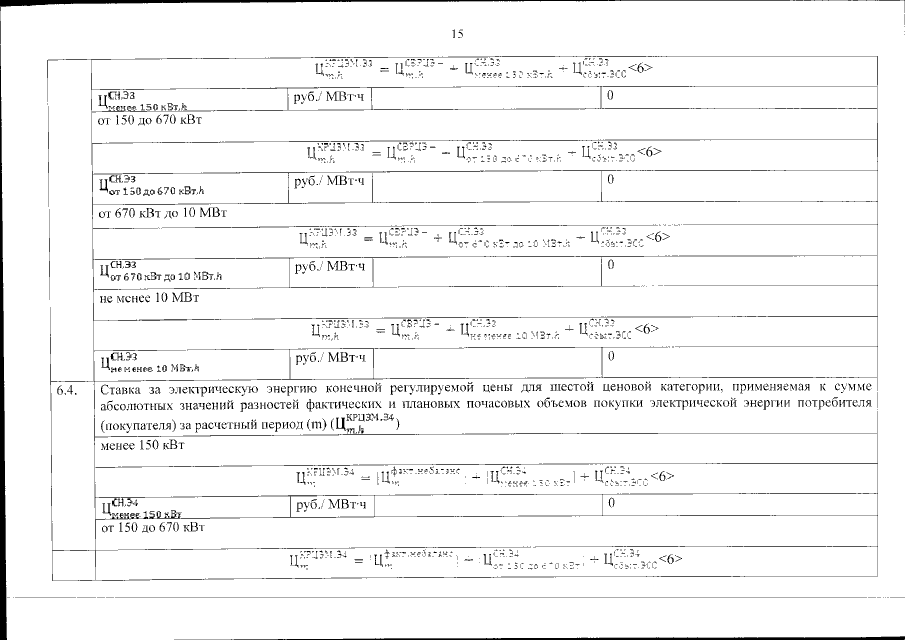 15
Ц КРЦЭМ.Э3 m,h = Ц СВРЦЭ– m,h + Ц СН.Э3 менее 150 кВт,h + Ц СН.Э3 сбыт.ЭСО <6>
Ц СН.Э3 менее 150 кВт,h руб./ МВт·ч 0
от 150 до 670 кВт
Ц КРЦЭМ.Э3 m,h = Ц СВРЦЭ– m,h – Ц СН.Э3 от 150 до 670 кВт,h + Ц СН.Э3 сбыт.ЭСО <6>
Ц СН.Э3 от 150 до 670 кВт,h руб./ МВт·ч 0
от 670 кВт до 10 МВт
Ц КРЦЭМ.Э3 m,h = Ц СВРЦЭ– m,h + Ц СН.Э3 от 670 кВт до 10 МВт,h – Ц СН.Э3 сбыт.ЭСО <6>
Ц СН.Э3 от 670 кВт до 10 МВт,h руб./ МВт·ч 0
не менее 10 МВт
Ц КРЦЭМ.Э3 m,h = Ц СВРЦЭ– m,h + Ц СН.Э3 не менее 10 МВт,h + Ц СН.Э3 сбыт.ЭСО <6>
Ц СН.Э3 не менее 10 МВт,h руб./ МВт·ч 0
6.4. Ставка за электрическую энергию конечной регулируемой цены для шестой ценовой категории, применяемая к сумме
абсолютных значений разностей фактических и плановых почасовых объемов покупки электрической энергии потребителя
(покупателя) за расчетный период (m) (Ц КРЦЭМ.Э4 m,h)
менее 150 кВт
Ц КРЦЭМ.Э4 m = |Ц факт.небаланс m | + |Ц СН.Э4 менее 150 кВт| + Ц СН.Э4 сбыт.ЭСО <6>
Ц СН.Э4 менее 150 кВт руб./ МВт·ч 0
от 150 до 670 кВт
Ц КРЦЭМ.Э4 m = |Ц факт.небаланс m | – |Ц СН.Э4 от 150 до 670 кВт| + Ц СН.Э4 сбыт.ЭСО <6>